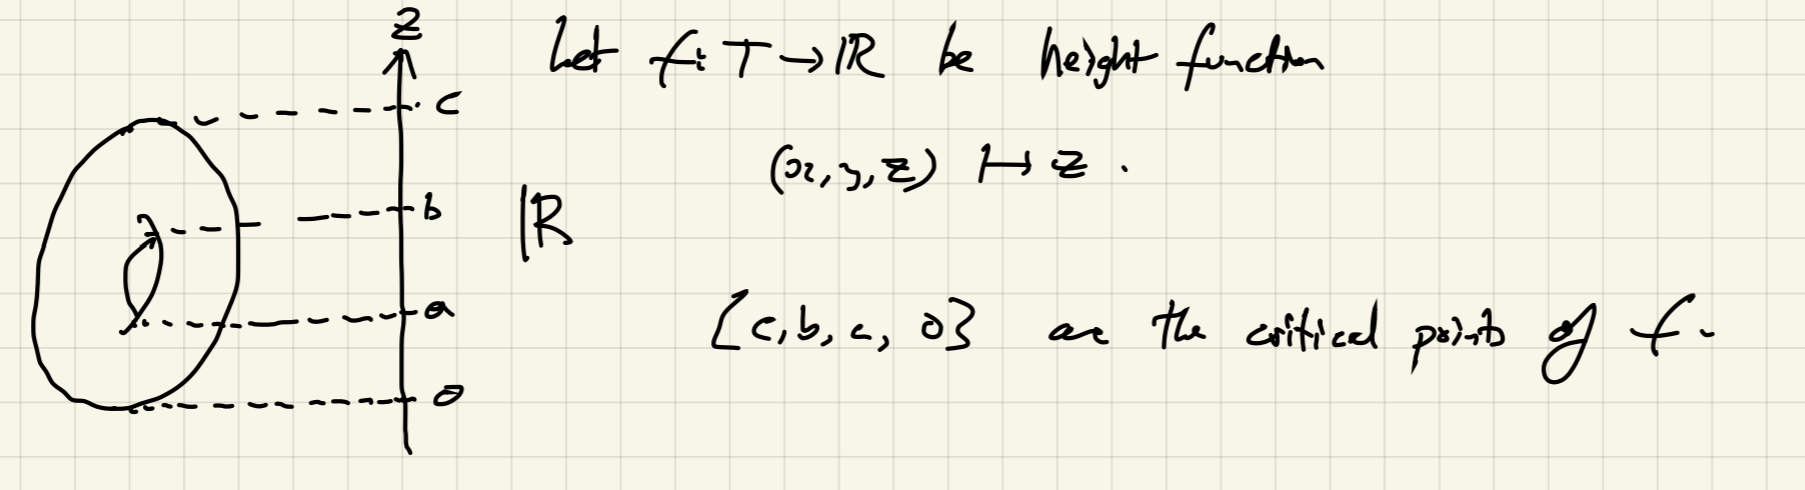 z
Let f: T → ℝ be height function
c
(x, y, z) ↦ z.
b
ℝ
a
{c, b, a, 0} are the critical points of f.
0